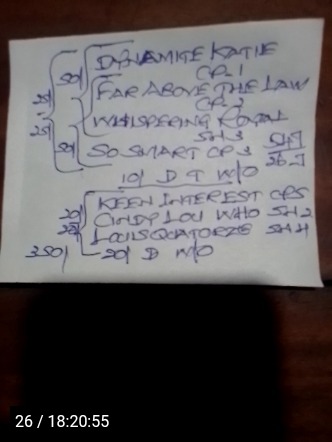 DYNAMITE KATIE
CP.1
50/
FAR ABOVE THE LAW
CP.2
WHISPERING ROYAL
SH 3
50/ SO SMART CP 3
10/ D T W/O
KEEN INTEREST CP5
20/ CINDY LOU WHO SH 2
LOUISQUATORZE SH 4
350/ 20/ D W/O
26 / 18:20:55